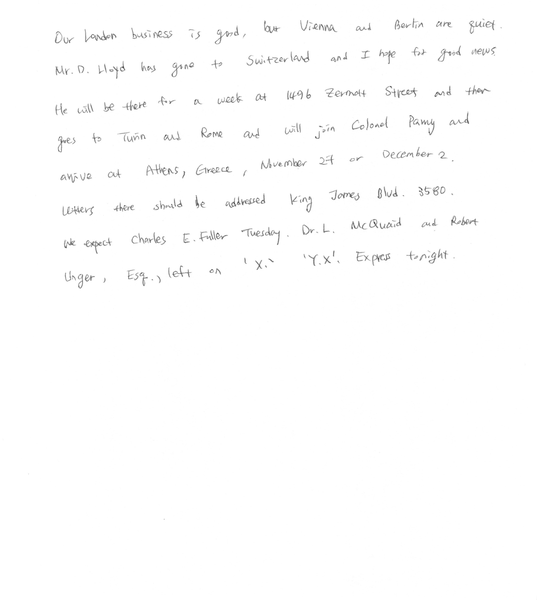 Our London business is good, but Vienna and Berlin are quiet.
Mr. D. Lloyd has gone to Switzerland and I hope for good news
He will be there for a week at 1496 Zermott Street and then
goes to Turin and Rome and will join Colonel Parry and
arrive at Athens, Greece, November 27 or December 2.
Letters there should be addressed King James Blvd. 3580.
We expect Charles E. Fuller Tuesday. Dr. L. McQuaid and Robert
Unger, Esq., left on 'X.' 'Y.X'. Express tonight.